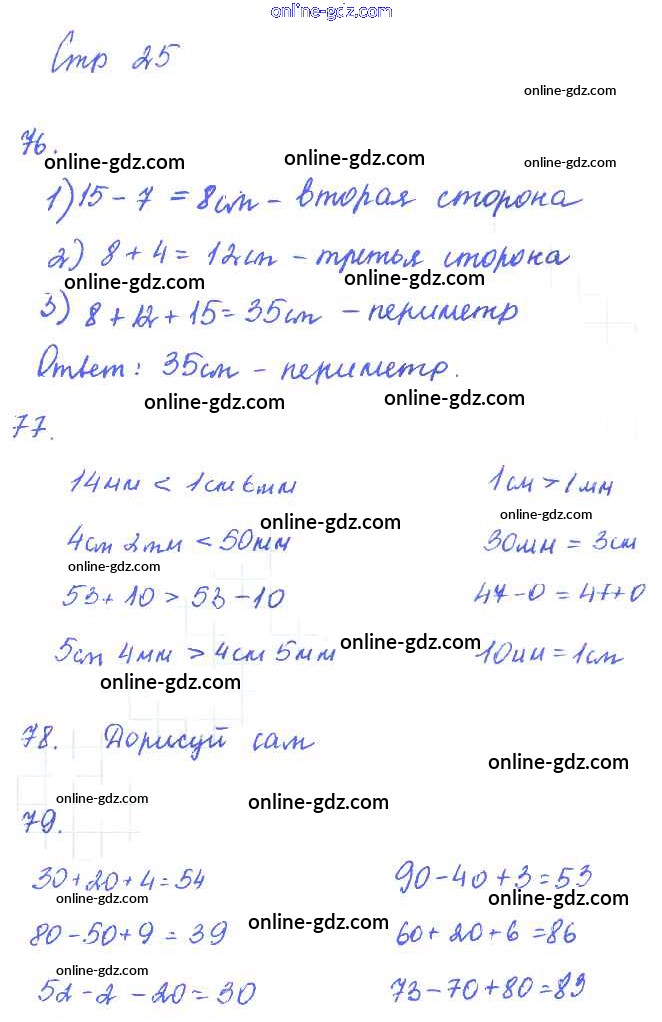 online-gdz.com
Стр 25
online-gdz.com
76.
online-gdz.com online-gdz.com online-gdz.com
1) 15 - 7 = 8см - вторая сторона
2) 8 + 4 = 12см - третья сторона
online-gdz.com online-gdz.com
3) 8 + 12 + 15 = 35см - периметр
Ответ: 35см - периметр.
online-gdz.com online-gdz.com
77.
14мм < 1см 6мм 1см > 1мм
online-gdz.com online-gdz.com
4см 2мм < 50мм 30мм = 3см
online-gdz.com
53 + 10 > 53 - 10 47 - 0 = 47 + 0
online-gdz.com
5см 4мм > 4см 5мм 10мм = 1см
online-gdz.com
78. Дорисуй сам
online-gdz.com
online-gdz.com online-gdz.com
79.
30 + 20 + 4 = 54 90 - 40 + 3 = 53
online-gdz.com online-gdz.com
80 - 50 + 9 = 39 60 + 20 + 6 = 86
online-gdz.com
online-gdz.com online-gdz.com
52 - 2 - 20 = 30 73 - 70 + 80 = 83